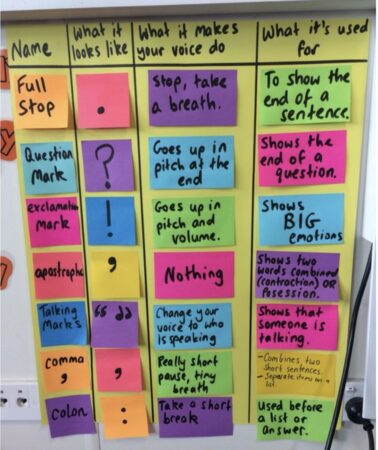 Name
What it looks like
What it makes your voice do
What it's used for
Full Stop
.
Stop, take a breath.
To show the end of a sentence.
Question Mark
?
Goes up in pitch at the end
Shows the end of a question.
exclamation Mark
!
Goes up in pitch and volume.
Shows BIG emotions
apostrophe
,
Nothing
Shows two words combined (contraction) OR Posession.
Talking Marks
“ ”
Change your voice to who is speaking
Shows that someone is talking.
comma ,
,
Really short pause, tiny breath
- Combines two short sentences.
- Separate items in a list.
colon
:
Take a short break
Used before a list or answer.